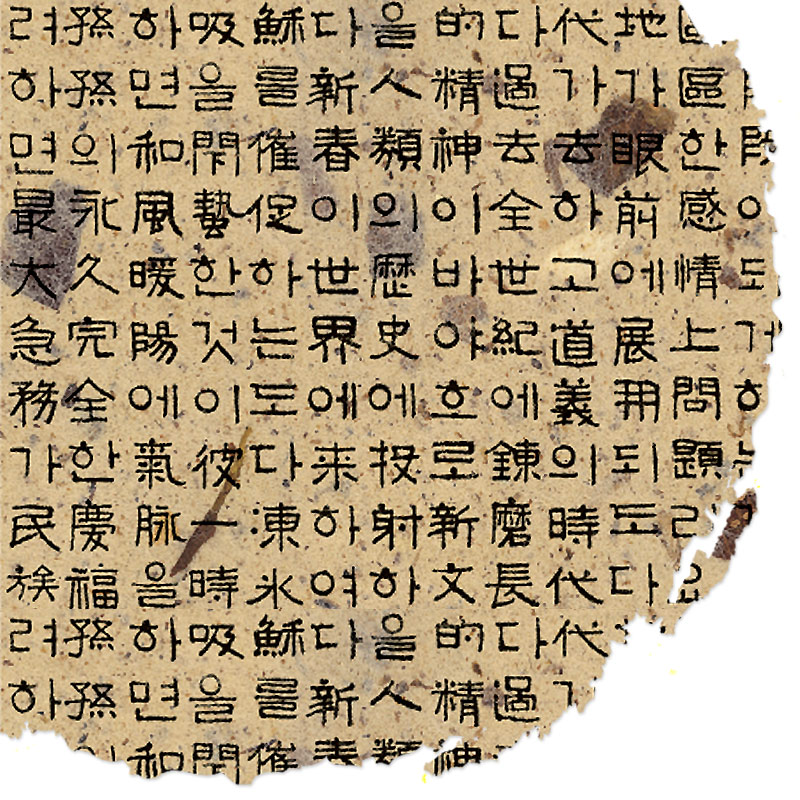 이되
區한感情上問題
地가眼前에展開되도다
代가去하고道義의時代代
다過去全世紀에鍊磨長다過
的精神이바야흐로新文的精神
을人類의歷史에投射하을人類
다新春이世界에來하여다新春
穌를催促하는도다凍氷穌를催
吸을閉蟄한것이彼一時吸을閉
하면和風暖陽에氣脈을하면和
孫孫의永久完全한慶福孫孫
려하면最大急務가民族려하